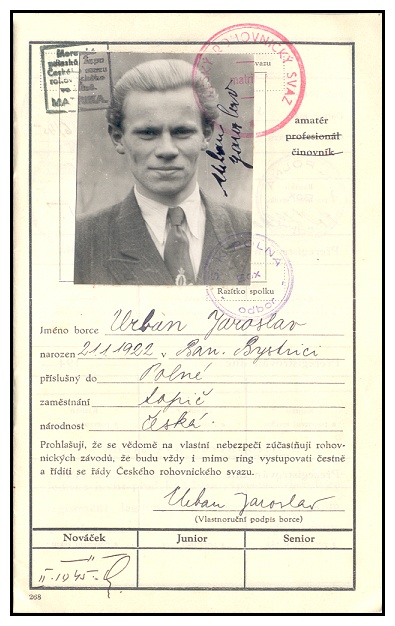 ROHOVNICKÝ SVAZ
svazu
MATRIKA.
Urban
Jaroslav
amatér
profesionál
činovník
Razítko spolku
Jméno borce Urban Jaroslav
narozen 21.1.1922 v Ban. Bystrici
příslušný do Polné
zaměstnání topič
národnost česká.
Prohlašuji, že se vědomě na vlastní nebezpečí zúčastňuji rohov-
nických závodů, že budu vždy i mimo ring vystupovati čestně
a říditi se řády Českého rohovnického svazu.
Urban Jaroslav
(Vlastnoruční podpis borce)
Nováček Junior Senior
II.-1945-
268